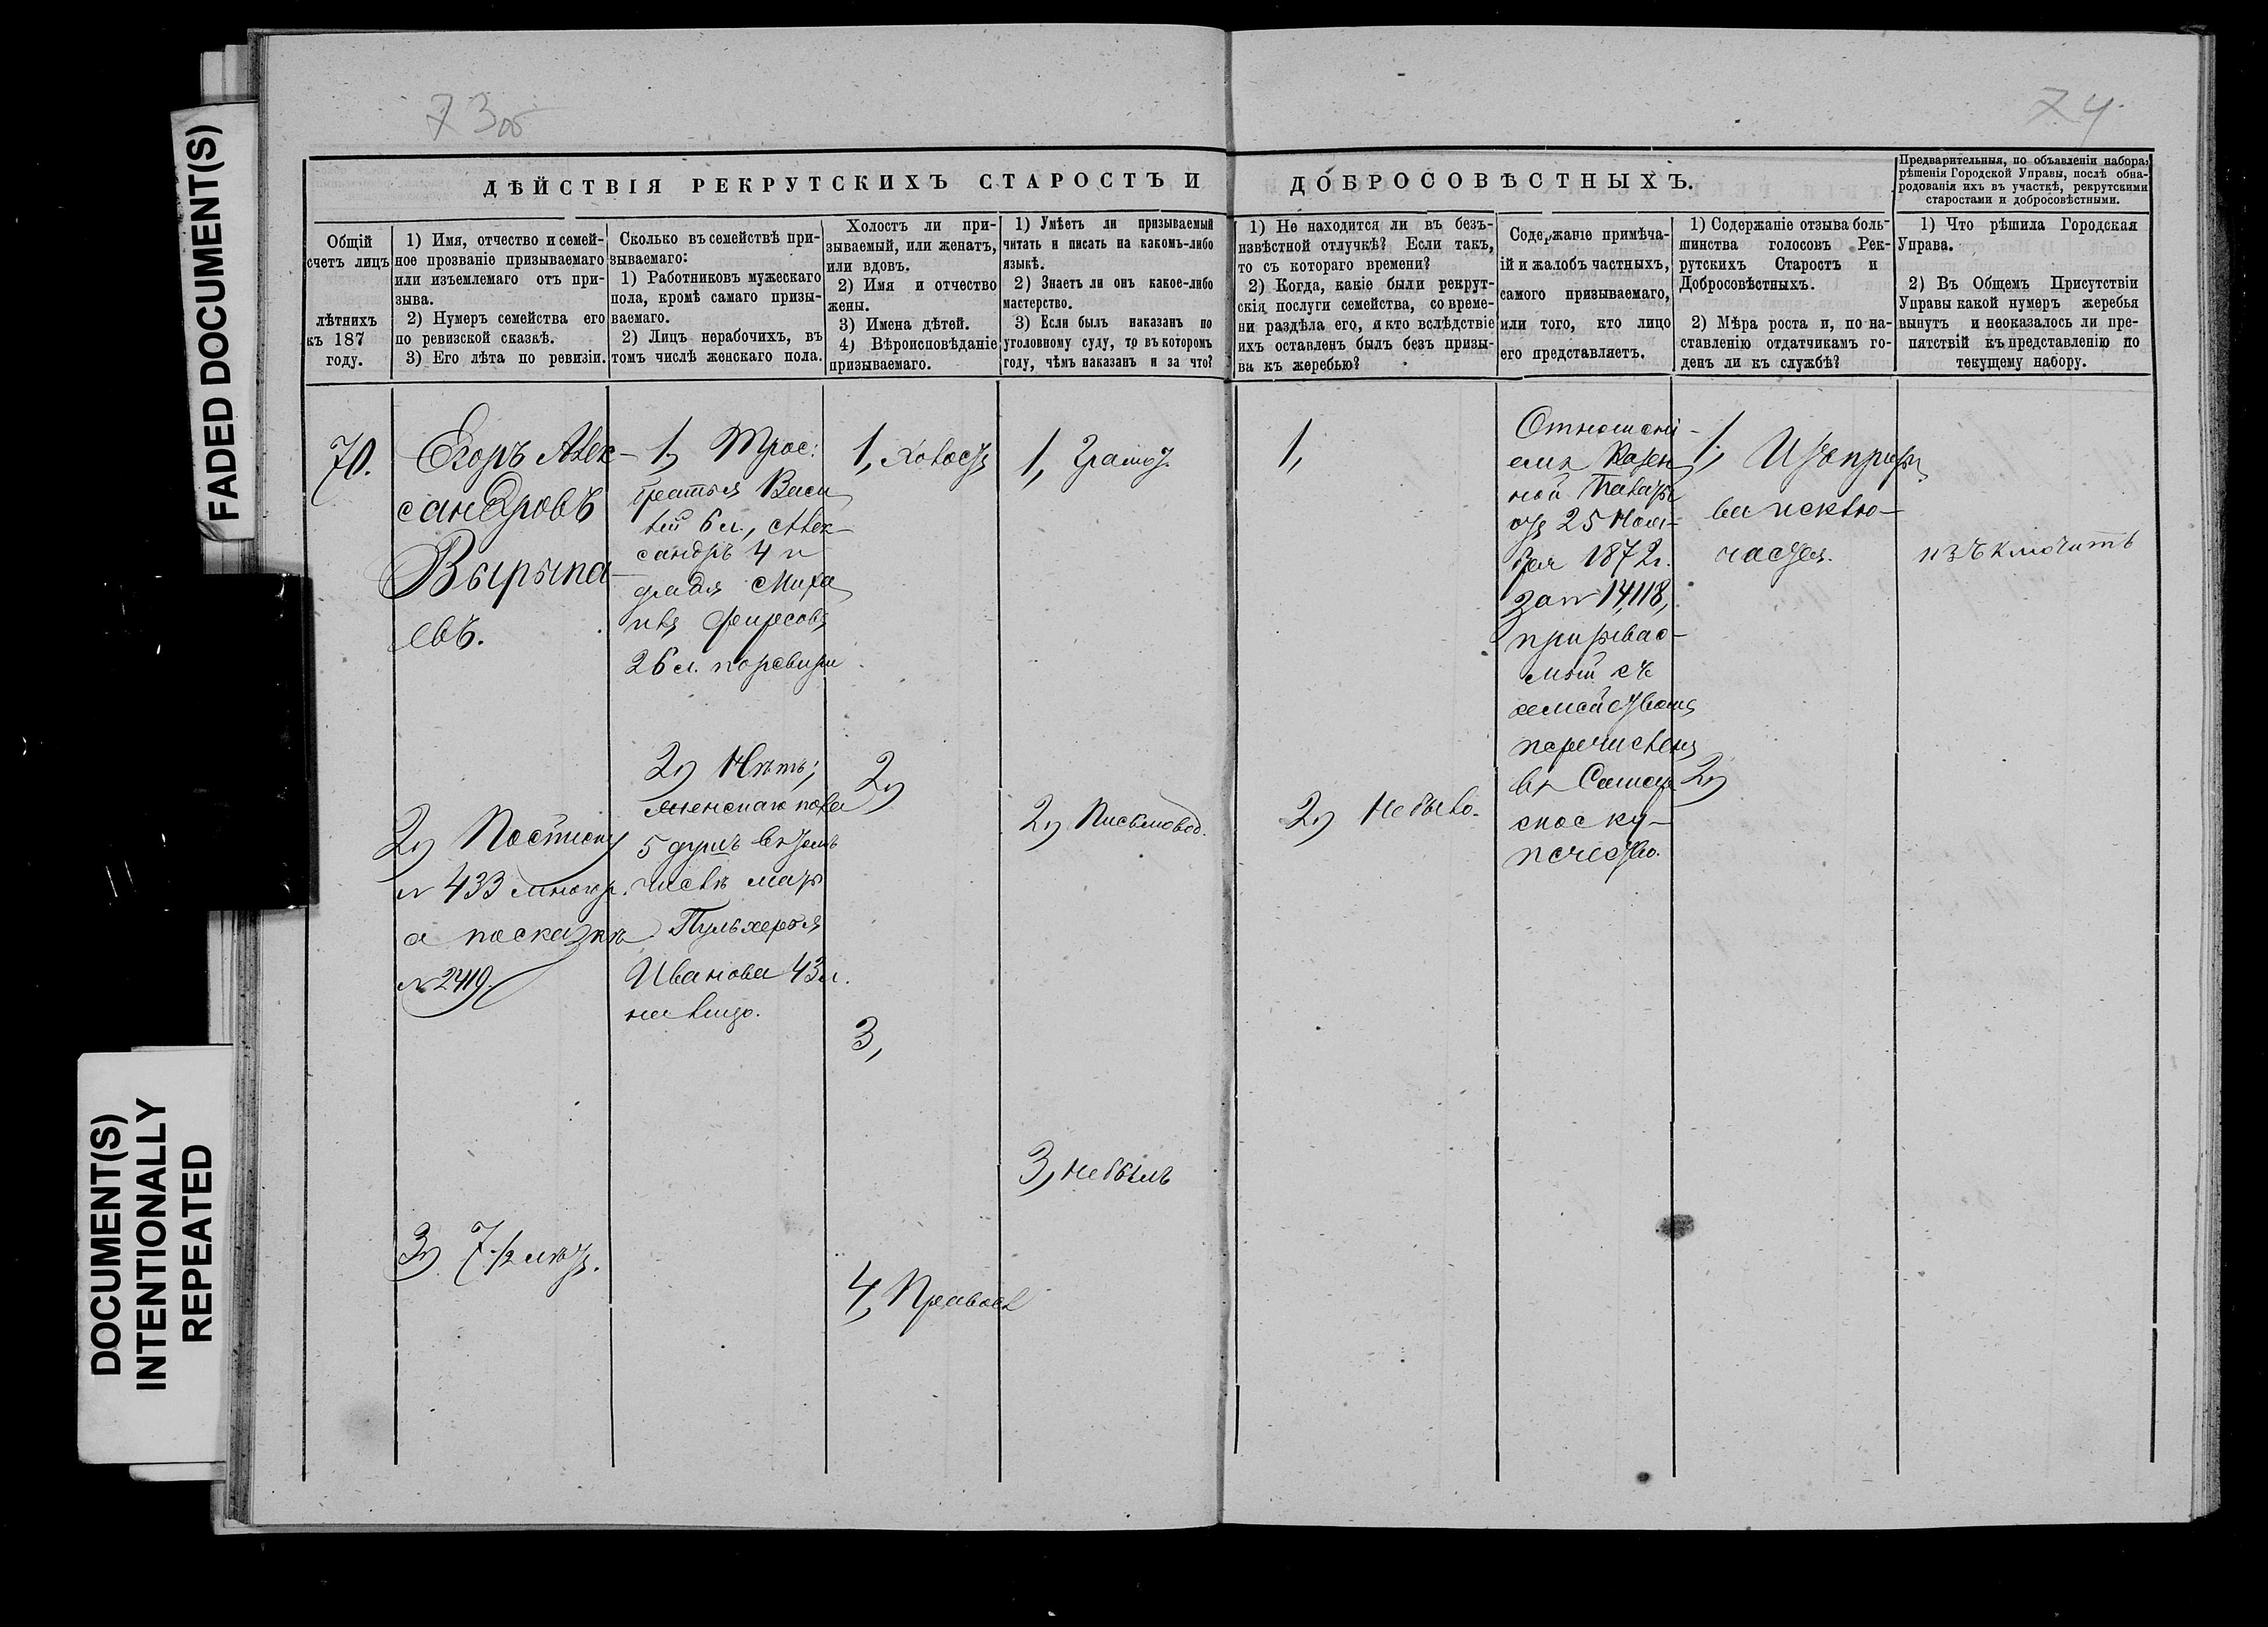 FADED DOCUMENT(S)
DOCUMENT(S)
INTENTIONALLY
REPEATED
73об
74
ДѢЙСТВІЯ РЕКРУТСКИХЪ СТАРОСТЪ И ДОБРОСОВѢСТНЫХЪ.
Предварительныя, по объявленіи набора,
рѣшенія Городской Управы, послѣ обна-
родованія ихъ въ участкѣ, рекрутскими
старостами и добросовѣстными.
Общій
счетъ лицъ
лѣтнихъ
къ 187
году.
1) Имя, отчество и семей-
ное прозваніе призываемаго
или изъемлемаго отъ при-
зыва.
2) Нумеръ семейства его
по ревизской сказкѣ.
3) Его лѣта по ревизіи.
Сколько въ семействѣ при-
зываемаго:
1) Работниковъ мужескаго
пола, кромѣ самаго призы-
ваемаго.
2) Лицъ нерабочихъ, въ
томъ числѣ женскаго пола.
Холостъ ли при-
зываемый, или женатъ,
или вдовъ.
2) Имя и отчество
жены.
3) Имена дѣтей.
4) Вѣроисповѣданіе
призываемаго.
1) Умѣетъ ли призываемый
читать и писать на какомъ-либо
языкѣ.
2) Знаетъ ли онъ какое-либо
мастерство.
3) Если былъ наказанъ по
уголовному суду, то въ которомъ
году, чѣмъ наказанъ и за что?
1) Не находится ли въ безъ-
извѣстной отлучкѣ? Если такъ,
то съ котораго времени?
2) Когда, какіе были рекрут-
скія послуги семейства, со време-
ни раздѣла его, и кто вслѣдствіе
ихъ оставленъ былъ безъ призы-
ва къ жеребью?
Содержаніе примѣча-
ій и жалобъ частныхъ,
самого призываемаго,
или того, кто лицо
его представляетъ.
1) Содержаніе отзыва боль-
шинства голосовъ Рек-
рутскихъ Старостъ и
Добросовѣстныхъ.
2) Мѣра роста и, по на-
ставленію отдатчикамъ го-
денъ ли къ службѣ?
1) Что рѣшила Городская
Управа.
2) Въ Общемъ Присутствіи
Управы какой нумеръ жеребья
вынутъ и неоказалось ли пре-
пятствій къ представленію по
текущему набору.
70.
Егоръ Алек-
сандровъ
Вырыпа-
евъ.
2) Посписку
№ 433 многор.
а посказкѣ
№ 2419.
3) 7½ лѣтъ.
1) Трое:
братья Васи
лій 6 л., Алек-
сандръ 4 и
дядя Миха
илъ Фирсовъ
26 л. поревизіи
2) Нѣтъ;
женскаго пола
5 душъ въ томъ
числѣ мать
Пульхерія
Иванова 43 л.
на лицо.
1, Холостъ
2)
3,
4, Правосл
1, Грамот.
2) Письмовод.
3, Не былъ
1,
2) Не было.
Отношені-
емъ Казен
ной Палаты
отъ 25 Нояб-
бря 1872 г.
за № 14,118,
призывае-
мый съ
семействомъ
перечисленъ
въ Самар
ское ку-
печество.
1, Изъ призы
ва исклю-
чается.
2)
изъключить